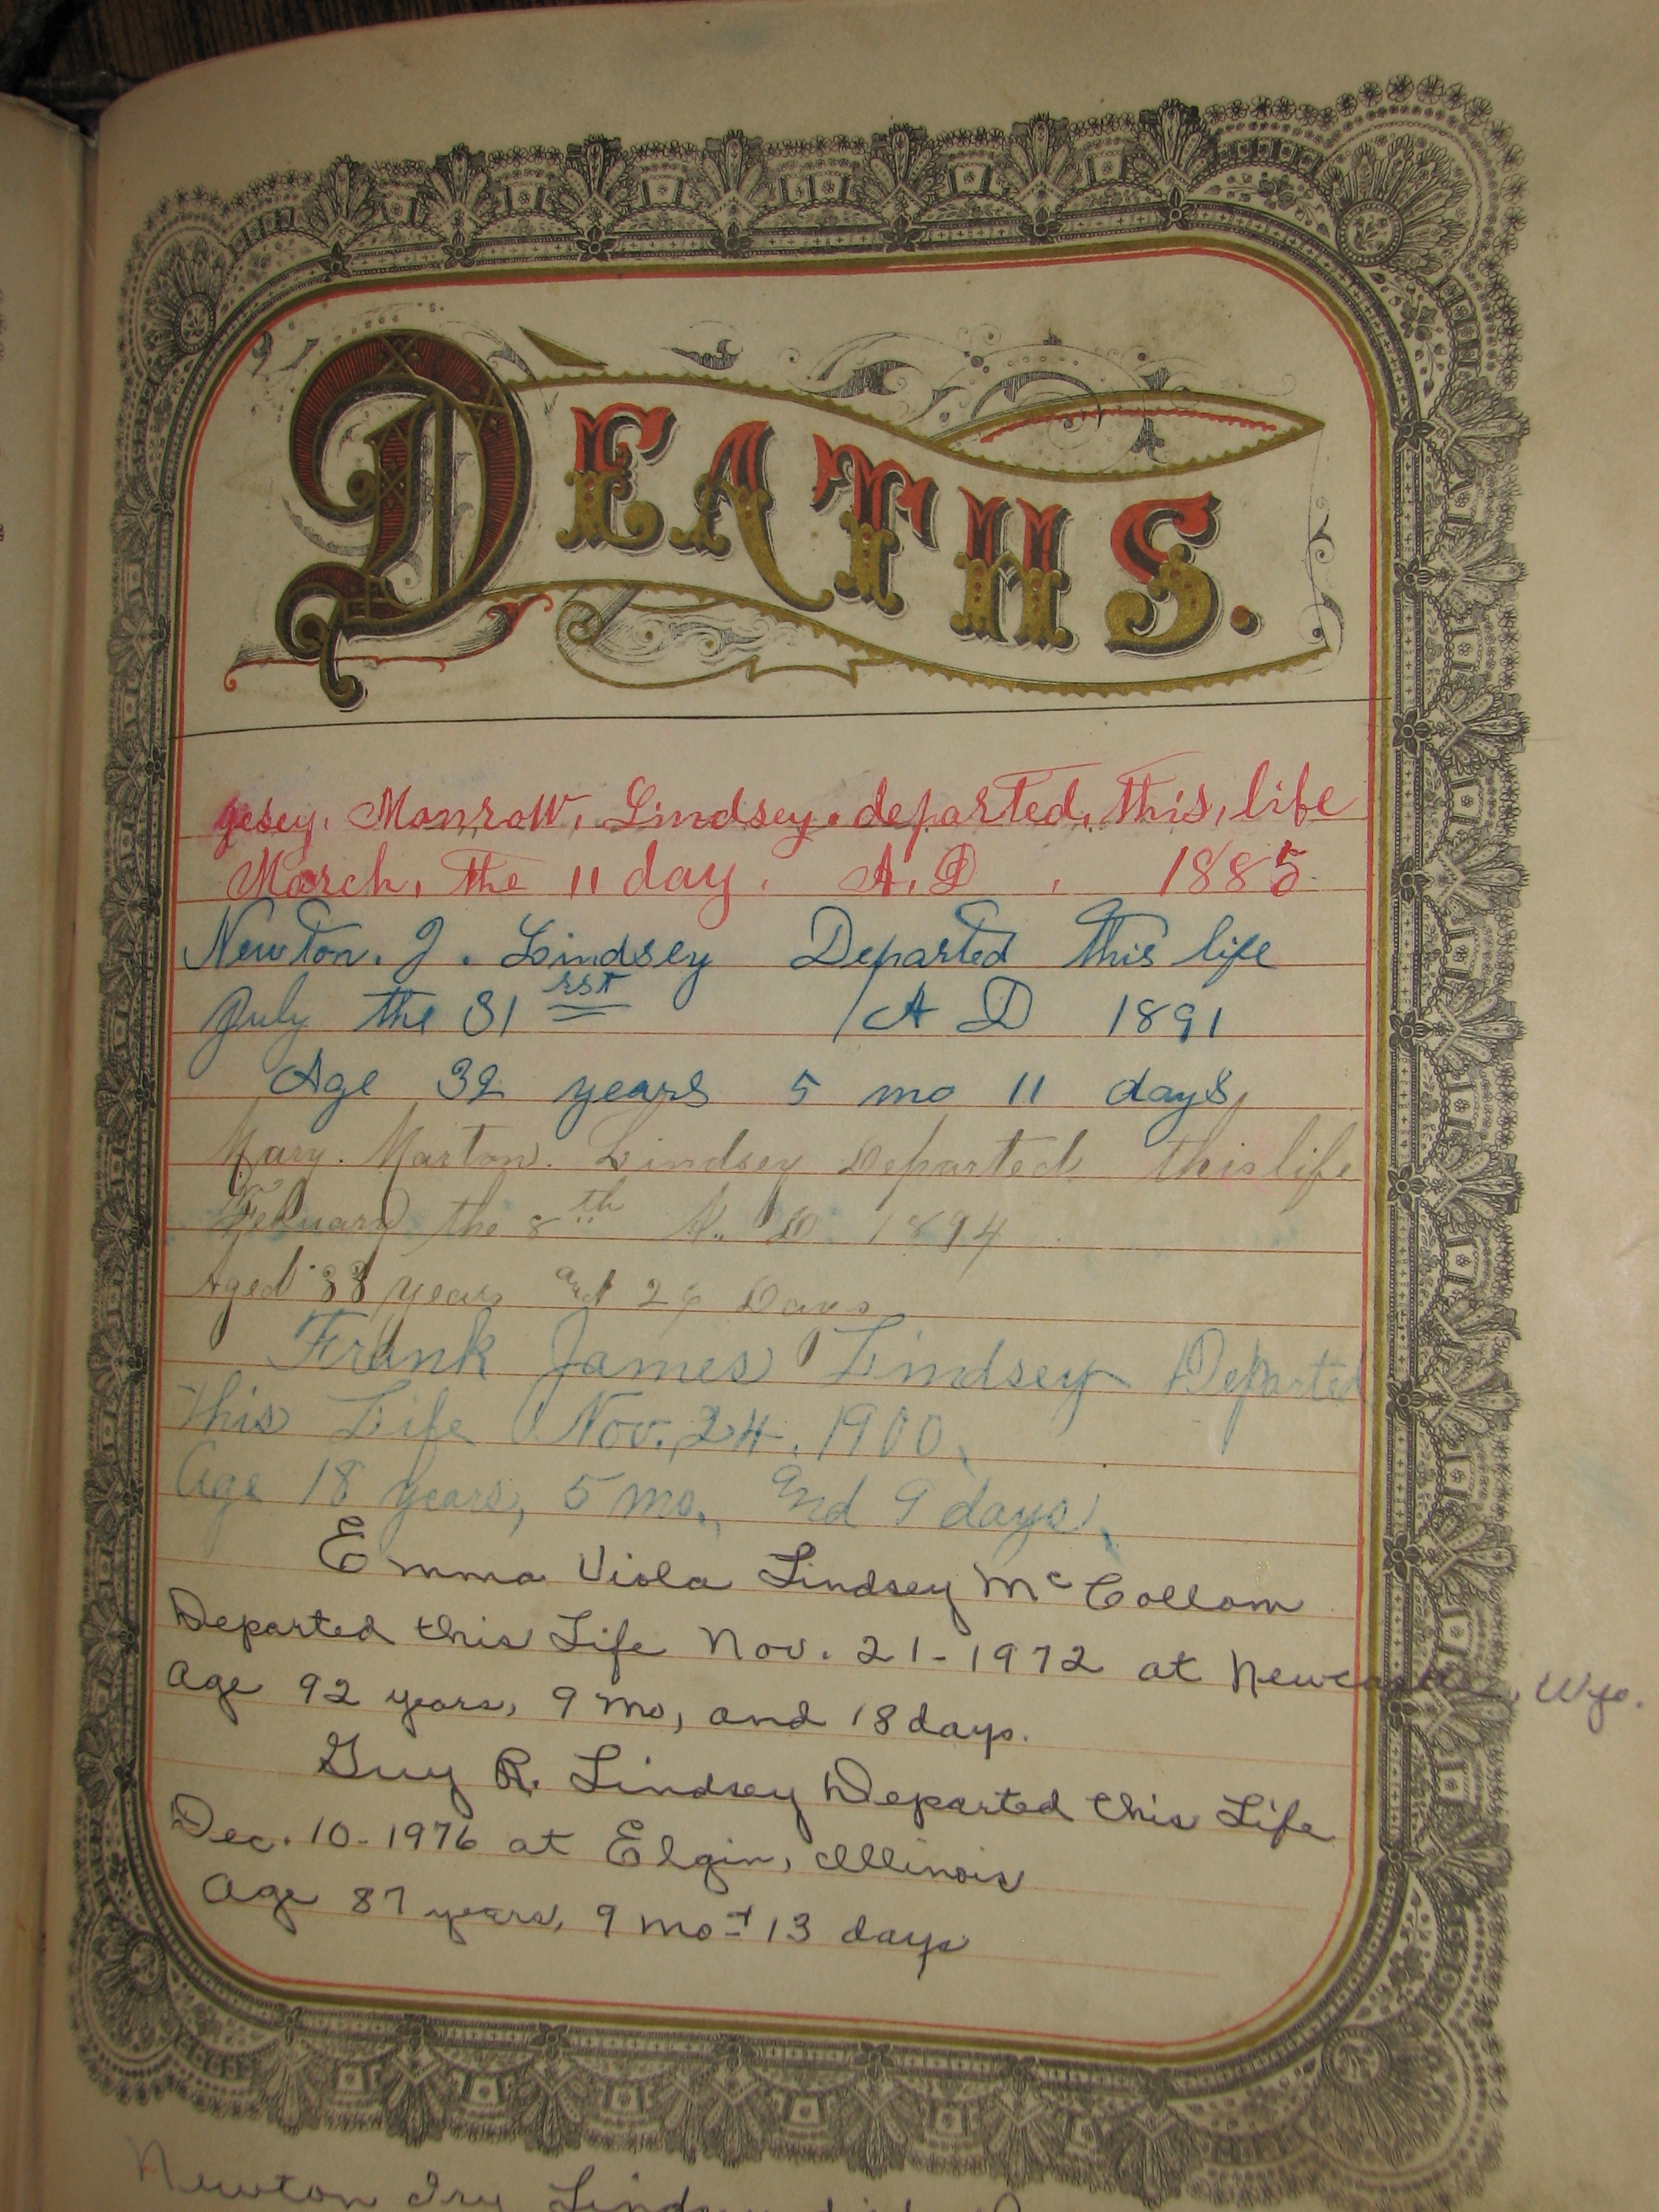 DEATHS.
gesey. MonroW, Lindsey. departed, this, life
March, the 11 day. A. D 1885
Newton. J. Lindsey Departed this life
July the 31 rst A D 1891
Age 32 years 5 mo 11 days
Mary. Marton. Lindsey Departed this life
Febuary the 8th A. D. 1894
Aged 33 years and Days
Frank James Lindsey Departed
this Life Nov. 24. 1900,
Age 18 years, 5 mo., and 9 days.
Emma Viola Lindsey McCollam
Departed this Life Nov. 21-1972 at Newcastle, Wyo.
age 92 years, 9 mo, and 18 days.
Guy R. Lindsey Departed this Life
Dec. 10-1976 at Elgin, Illinois
age 87 years, 9 mo + 13 days
Newton Ira Lindsey died